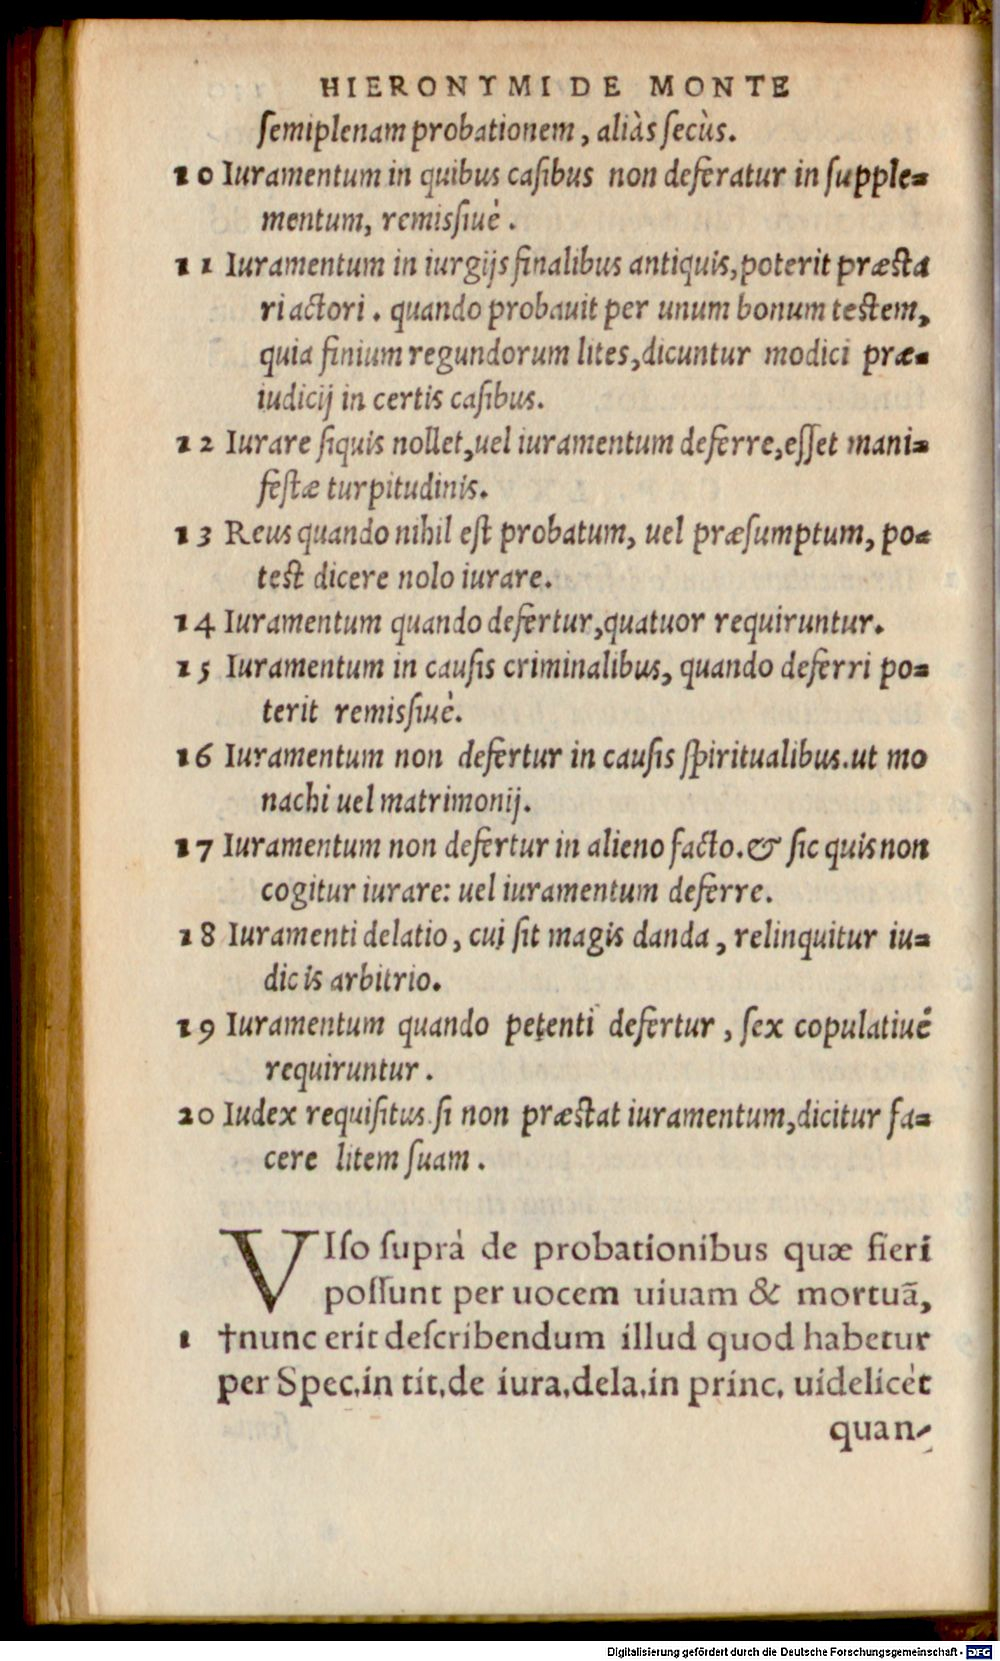 HIERONYMI DE MONTE
ſemiplenam probationem, aliàs ſecùs.
10 Iuramentum in quibus caſibus non deferatur in ſupple-
mentum, remisſiuè.
11 Iuramentum in iurgijs finalibus antiquis, poterit præsta
ri actori. quando probauit per unum bonum testem,
quia finium regundorum lites, dicuntur modici præ-
iudicij in certis caſibus.
12 Iurare ſiquis nollet, uel iuramentum deferre, eſſet mani-
feſtæ turpitudinis.
13 Reus quando nihil eſt probatum, uel præſumptum, po-
test dicere nolo iurare.
14 Iuramentum quando defertur, quatuor requiruntur.
15 Iuramentum in cauſis criminalibus, quando deferri po-
terit remisſiuè.
16 Iuramentum non defertur in cauſis ſpiritualibus. ut mo
nachi uel matrimonij.
17 Iuramentum non defertur in alieno facto. & ſic quis non
cogitur iurare: uel iuramentum deferre.
18 Iuramenti delatio, cui ſit magis danda, relinquitur iu-
dicis arbitrio.
19 Iuramentum quando petenti defertur, ſex copulatiuè
requiruntur.
20 Iudex requiſitus ſi non præstat iuramentum, dicitur fa-
cere litem ſuam.
VIſo ſuprà de probationibus quæ fieri
poſſunt per uocem uiuam & mortuã,
1 †nunc erit deſcribendum illud quod habetur
per Spec. in tit. de iura. dela. in princ. uidelicèt
quan-
Digitalisierung gefördert durch die Deutsche Forschungsgemeinschaft - DFG